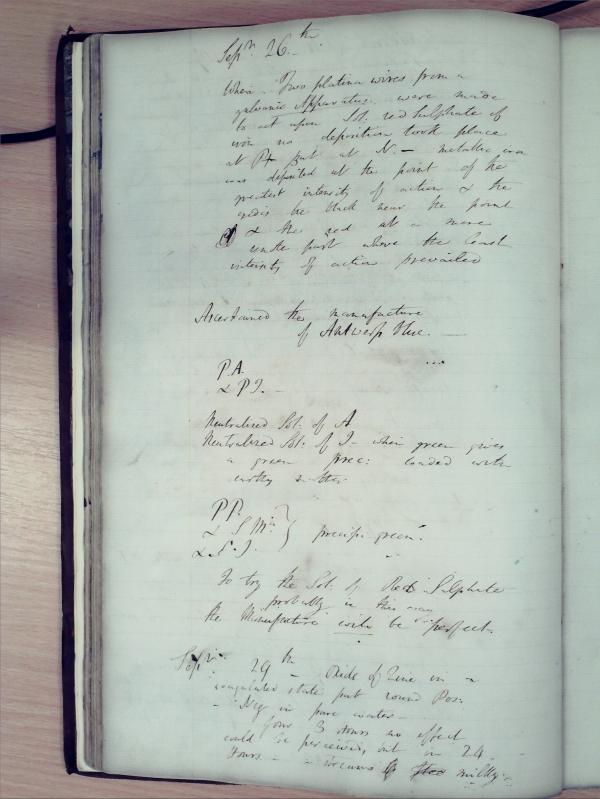 Sepr 26.th
When Two platina wires from a
galvanic Apparatus were made
to act upon Sol: red Sulphate of
iron no deposition took place
at P+ But at N.- metallic iron
was deposited at the point of the
greatest intensity of action & the
oxides be black near the point
& the red at a more
remote part where the least
intensity of action prevailed
Ascertained the manufacture
of Antwerp blue.
P.A.
& P I.
Neutralized Sol: of A
Neutralized Sol: of I - when green gives
a green prec: loaded with
earthy matter
P P.
& S Ma } precip. green.
& S. I.
To try the Sol: of Red Sulphate
probably in this way
the Manufacture will be perfect.
Sepr 29th - Oxide of Zinc in a
coagulated state put round Pos:
- Neg in pure water -
for 3 hours no effect
could be perceived, but in 24
hours - became milky.